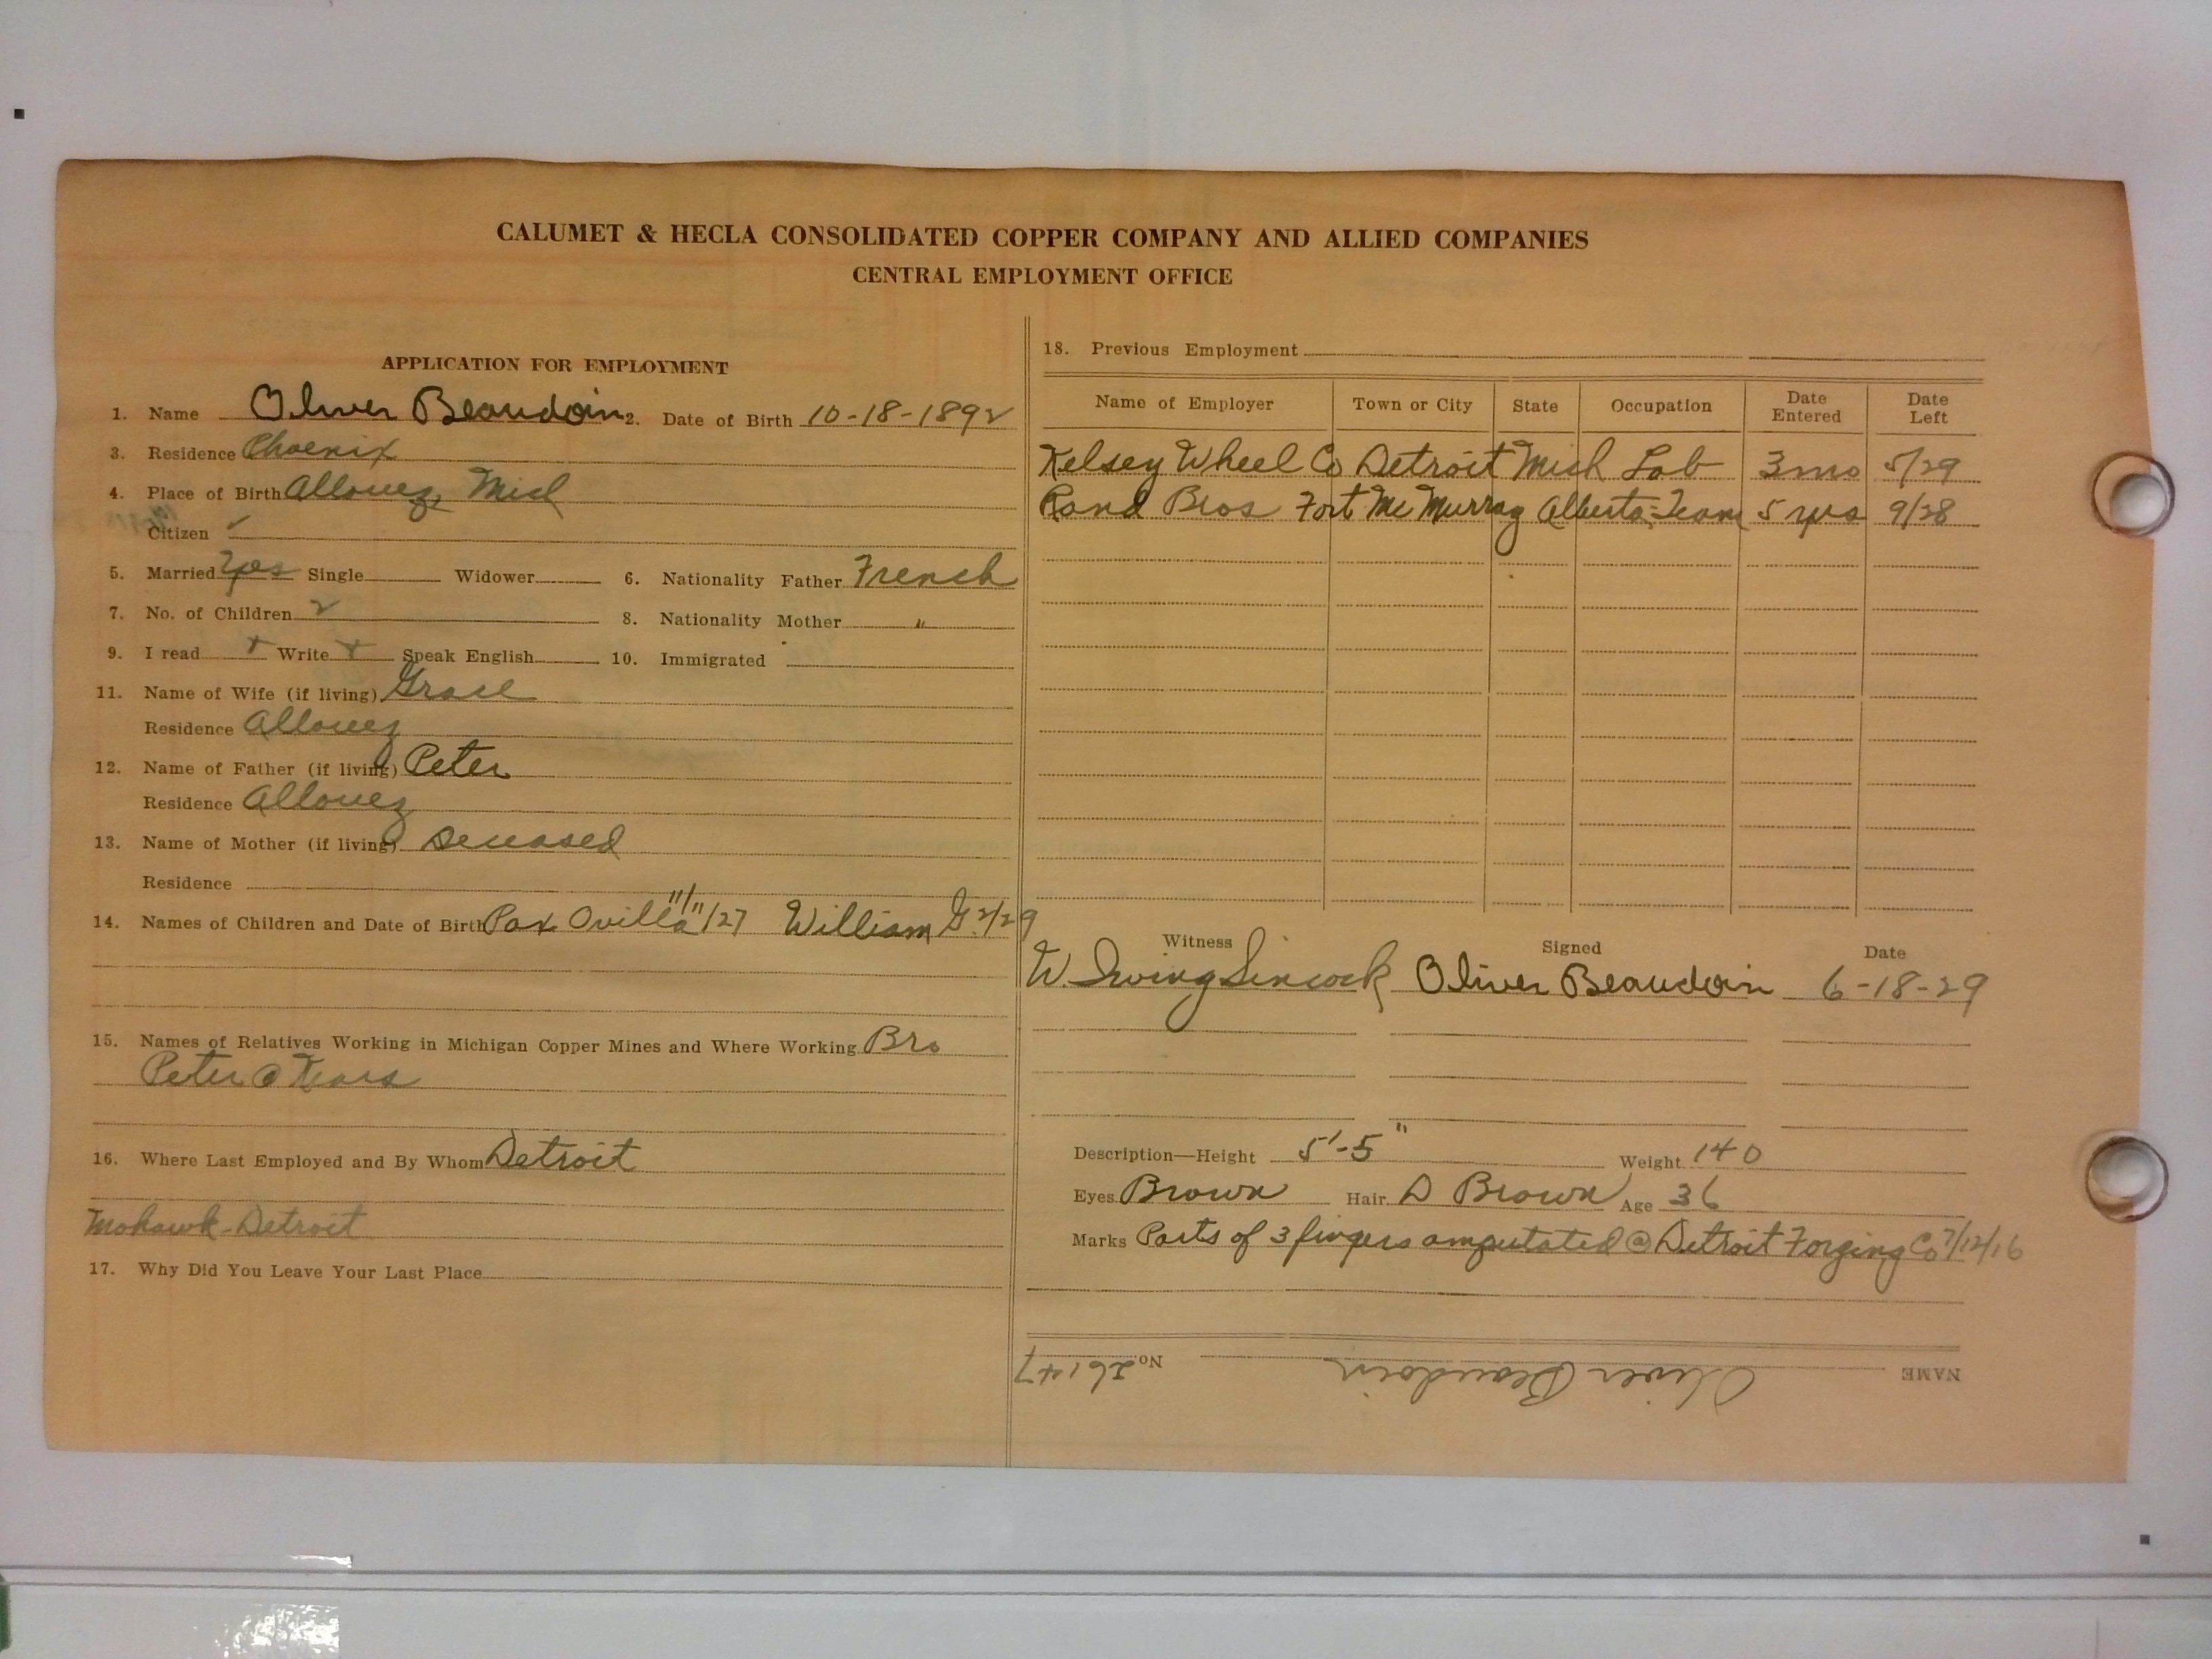 CALUMET & HECLA CONSOLIDATED COPPER COMPANY AND ALLIED COMPANIES
CENTRAL EMPLOYMENT OFFICE
APPLICATION FOR EMPLOYMENT
1. Name Oliver Beaudoin 2. Date of Birth 10-18-1892
3. Residence Phoenix
4. Place of Birth Allouez, Mich
Citizen ✓
5. Married Yes Single Widower 6. Nationality Father French
7. No. of Children 2 8. Nationality Mother "
9. I read + Write + Speak English 10. Immigrated
11. Name of Wife (if living) Grace
Residence Allouez
12. Name of Father (if living) Peter
Residence Allouez
13. Name of Mother (if living) Deceased
Residence
14. Names of Children and Date of Birth Pax Ovilla 11/11/27 William G. 2/29
15. Names of Relatives Working in Michigan Copper Mines and Where Working Bro
Peter @
16. Where Last Employed and By Whom Detroit
Mohawk-Detroit
17. Why Did You Leave Your Last Place
18. Previous Employment
Name of Employer Town or City State Occupation Date Entered Date Left
Kelsey Wheel Co Detroit Mich Lab 3 mo 5/29
Rand Bros Fort McMurray Alberta Team 5 yrs 9/28
Witness Signed Date
W. Irving Sincock Oliver Beaudoin 6-18-29
Description—Height 5'-5" Weight 140
Eyes Brown Hair D Brown Age 36
Marks Parts of 3 fingers amputated @ Detroit Forging Co 7/12/16
NAME Oliver Beaudoin No. 26147